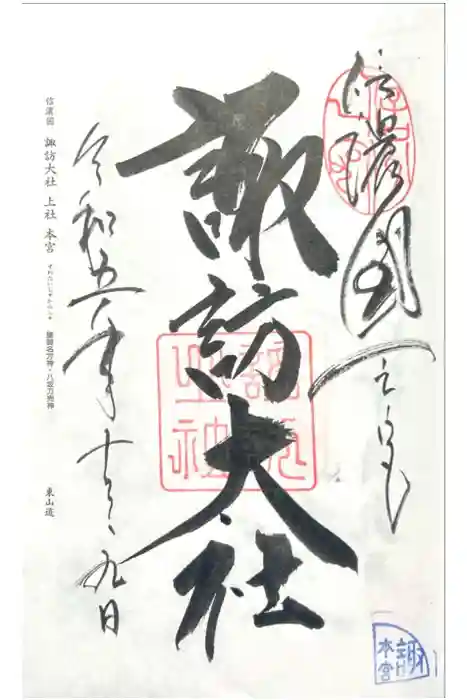 信濃国一之宮
諏訪大社
令和五年十月九日
信濃國 諏訪大社 上社 本宮 建御名方神・八坂刀売神 東山道
諏訪
本宮